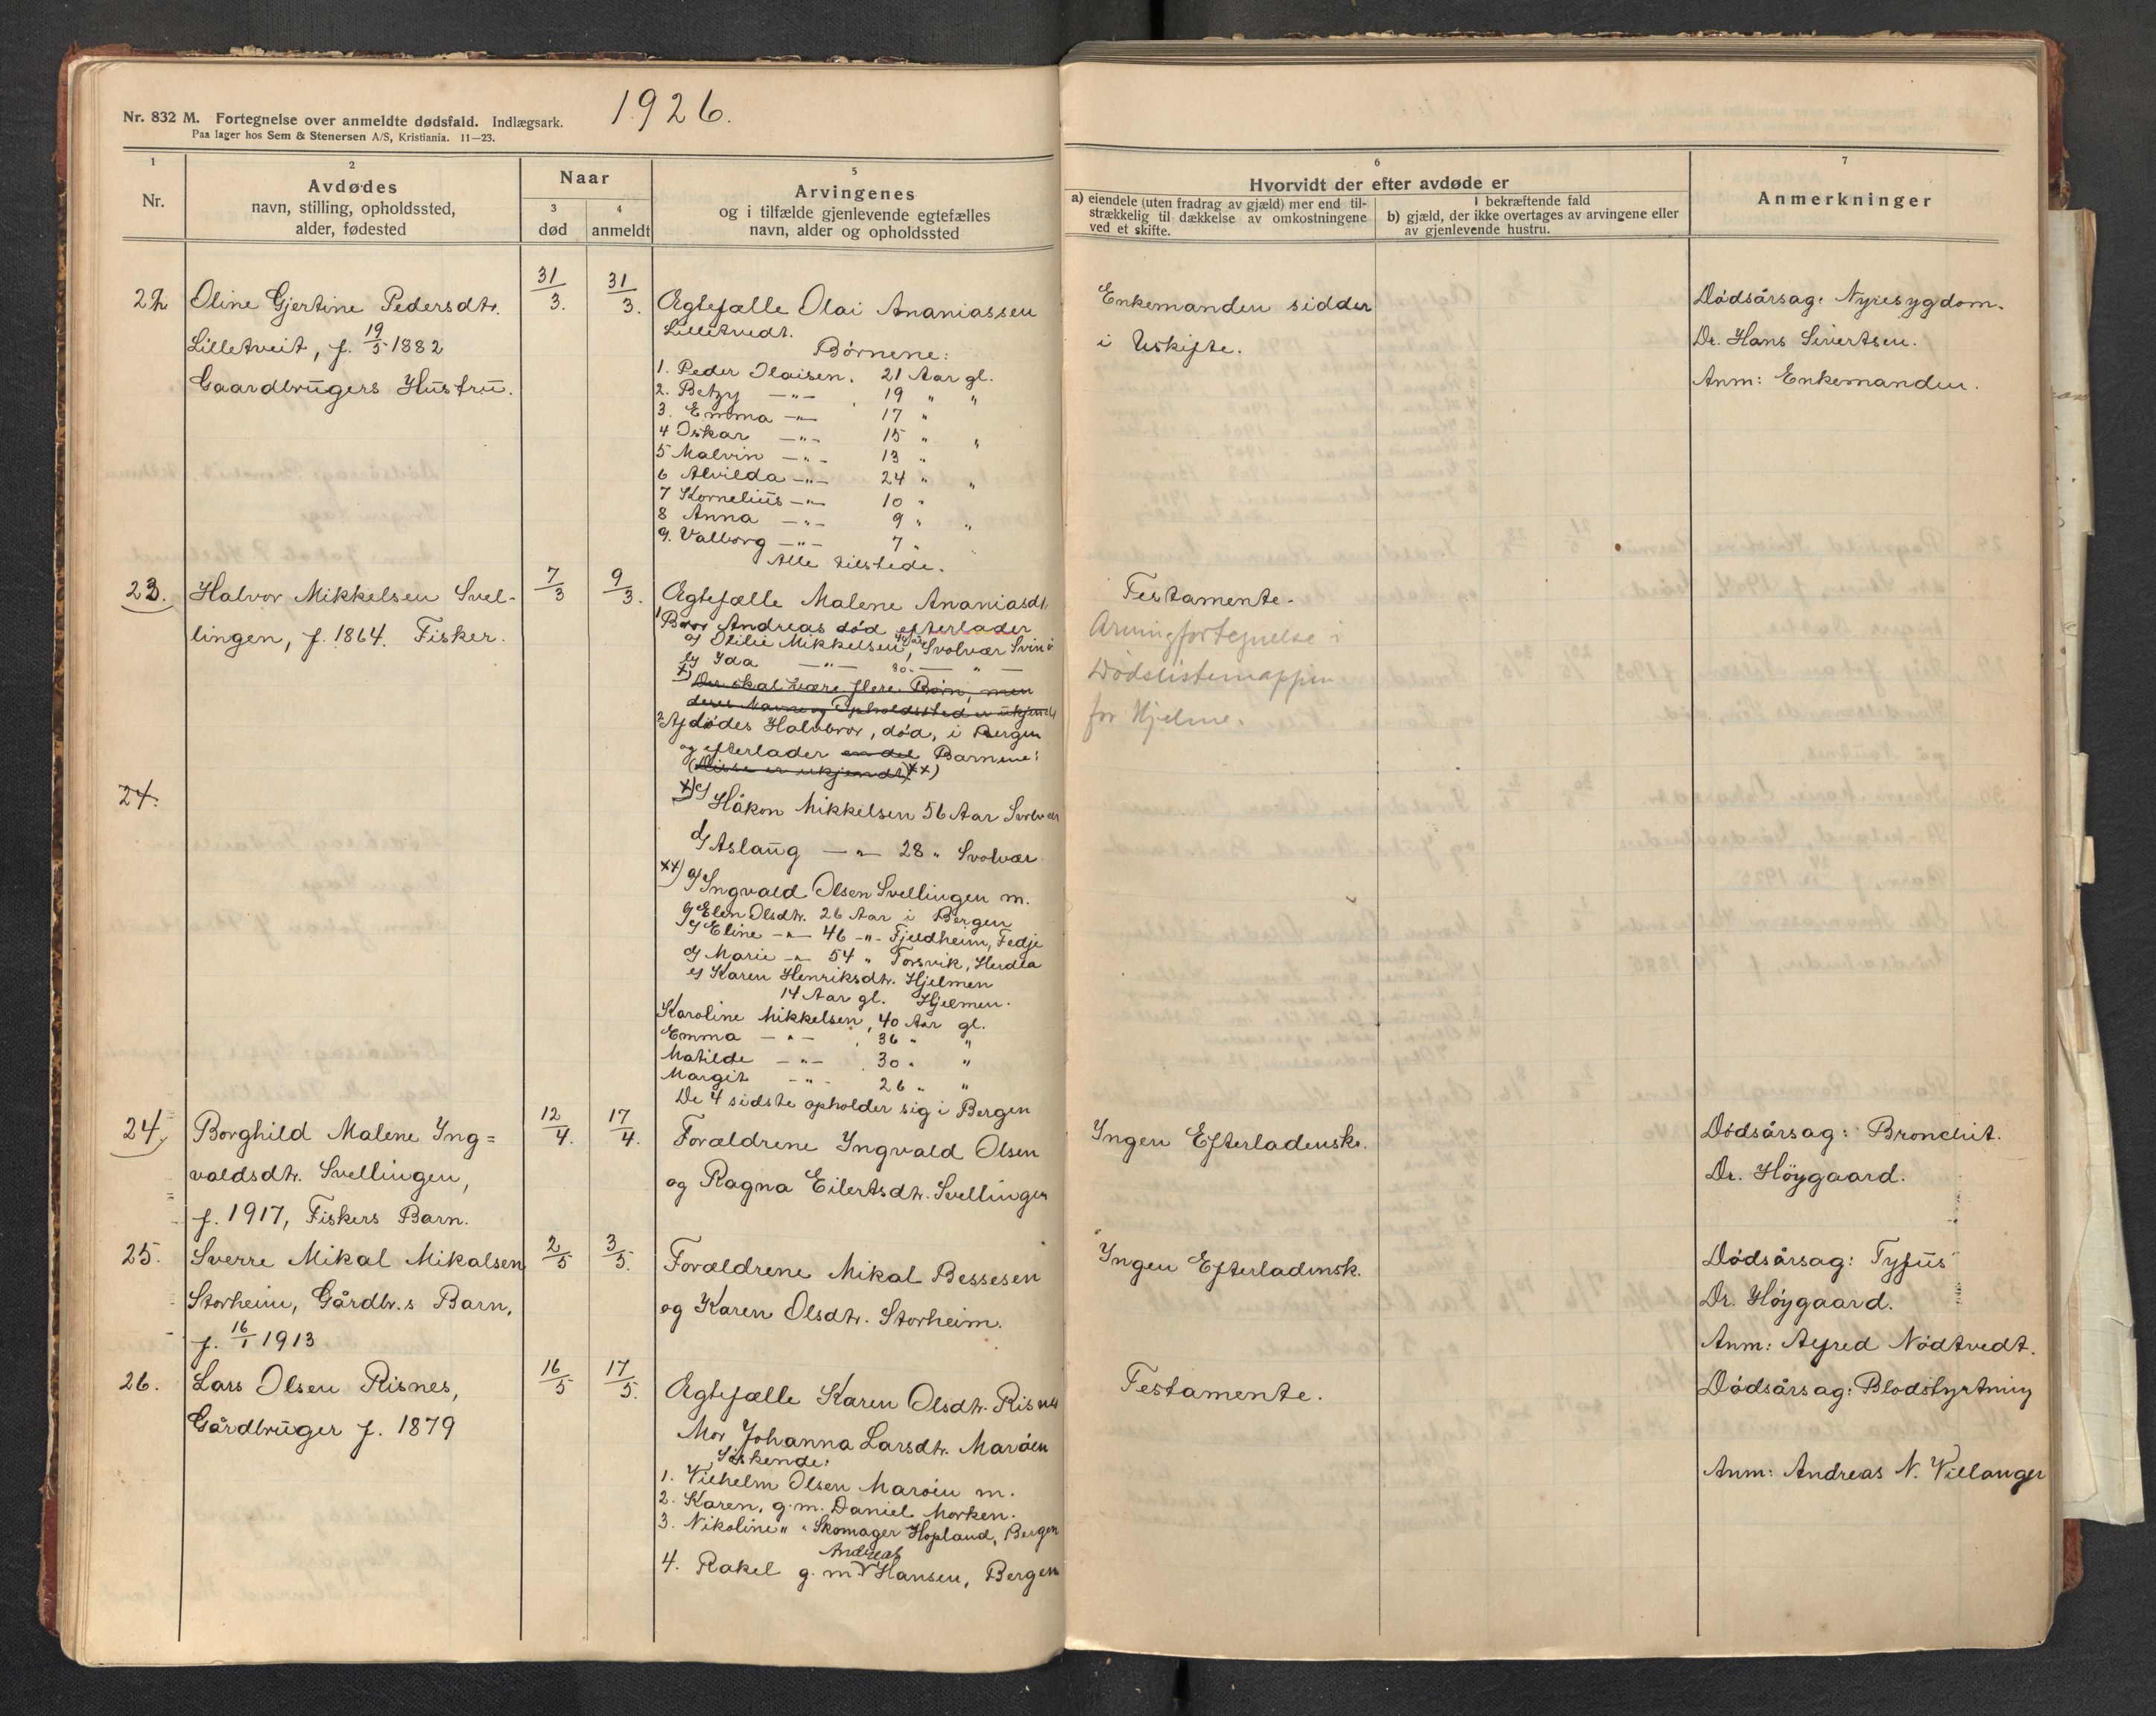 Nr. 832 M. Fortegnelse over anmeldte dødsfald. Indlægsark.
Paa lager hos Sem & Stenersen A/S, Kristiania. 11—23.
1926.
1
Nr.
2
Avdødes
navn, stilling, opholdssted,
alder, fødested
Naar
3
død
4
anmeldt
5
Arvingenes
og i tilfælde gjenlevende egtefælles
navn, alder og opholdssted
6
Hvorvidt der efter avdøde er
a) eiendele (uten fradrag av gjæld) mer end til-
strækkelig til dækkelse av omkostningene
ved et skifte.
I bekræftende fald
b) gjæld, der ikke overtages av arvingene eller
av gjenlevende hustru.
7
Anmerkninger
22
Oline Gjertine Pedersdtr.
Lilletveit, f. 19/5 1882
Gaardbrugers Hustru.
31/3.
31/3.
Ægtefælle Olai Ananiassen
Lilletvedt.
Børnene:
1. Peder Olaisen. 21 Aar gl.
2. Betzy —"— 19 " "
3. Emma —"— 17 "
4 Oskar —"— 15 " "
5 Malvin —"— 13 "
6 Alvilda —"— 24 " "
7 Kornelius —"— 10 "
8 Anna —"— 9 " "
9. Valborg —"— 7 "
Alle tilstede.
Enkemanden sidder
i Uskifte.
Dødsårsag: Nyresygdom.
Dr. Hans Sivertsen.
Anm: Enkemanden.
23.
Halvor Mikkelsen Svel-
lingen, f. 1864. Fisker.
7/3
9/3.
Ægtefælle Malene Ananiasdt.
1 Bror Andreas død efterlader
a) Otilie Mikkelsen, Svolvær
b) Ida —"— 30 — " —
x) Der skal være flere Børn, men
deres Navne og Opholdssted er ukjendt
2 Afdødes Halvbror, død, i Bergen
og efterlader en del Barnene:
(Disse er ukjendt) xx)
x) c) Håkon Mikkelsen 56 Aar Svolvær
d) Aslaug —"— 28 " Svolvær
xx) a) Ingvald Olsen Svellingen m.
b) Elen Olsdtr. 26 Aar i Bergen
c) Eline —"— 46 —"— Fjeldheim, Fedje
d) Marie —"— 54 " Torsvik, Herdla
e) Karen Henriksdtr. Hjelmen
14 Aar gl. Hjelmen.
Karoline Mikkelsen, 40 Aar gl.
Emma —"— , 36 " "
Matilde —"— . 30 " "
Margit —"— 26 " "
De 4 sidste opholder sig i Bergen
Testamente.
Arvingfortegnelse i
Dødslistemappen
for Hjelme.
24.
24
Borghild Malene Yng=
valdsdtr. Svellingen,
f. 1917, Fiskers Barn.
12/4.
17/4.
Forældrene Yngvald Olsen
og Ragna Eilertsdtr. Svellingen
Yngen Efterladensk.
Dødsårsag: Bronchit.
Dr. Höygaard.
25.
Sverre Mikal Mikalsen
Storheim, Gårdbr.s Barn,
f. 16/1 1913
2/5
3/5.
Forældrene Mikal Bessesen
og Karen Olsdtr. Storheim.
Yngen Efterladensk.
Dødsårsag: Tyfus
Dr. Höygaard.
Anm: Alfred Nödtvedt.
26.
Lars Olsen Risnes,
Gårdbruger f. 1879
16/5
17/5.
Ægtefælle Karen Olsdtr. Risnes
Mor Johanna Larsdtr. Marøen
Søskende:
1. Vilhelm Olsen Marøen m.
2. Karen, g.m. Daniel Morken.
3. Nikoline " " Skomager Hopland, Bergen
4. Rakel g. m. Andreas Hansen, Bergen
Testamente.
Dødsårsag: Blodstyrtning
Anm: Andreas N. Villanger